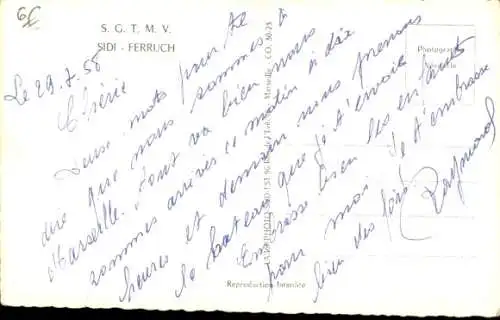 6E
S. G. T. M. V.
SIDI - FERRUCH
Le 29.7.55
Chérie
deux mots pour te
dire que nous sommes à
Marseille. Tout va bien nous
sommes arrivés ce matin à dix
heures et demain nous prenons
le bateau que je t'envoie
Embrasse bien les enfants
pour moi Je t'embrasse
bien des fois
Raymond
Marseille
Reproduction Interdite